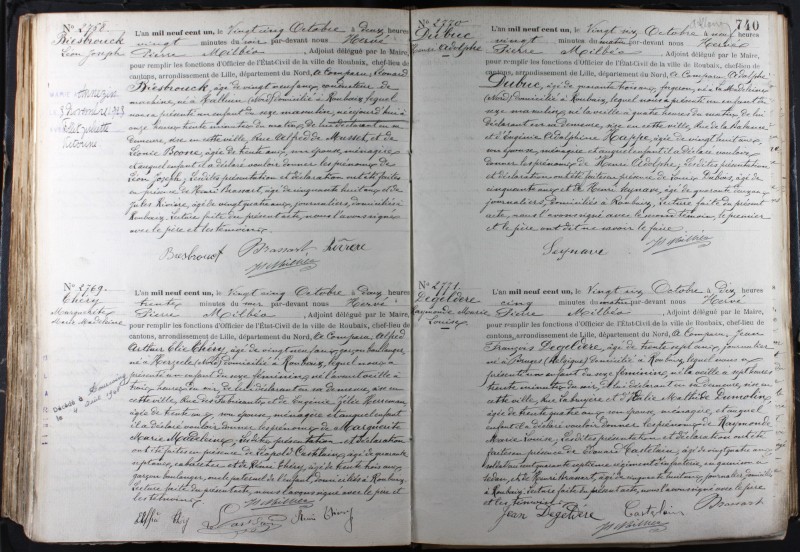 N° 2768.
Biesbrouck
Léon Joseph
L'an mil neuf cent un, le Vingt cinq Octobre à Deux heures
vingt minutes du soir par-devant nous Hervé
Pierre Milbéo, Adjoint délégué par le Maire,
pour remplir les fonctions d'Officier de l'État-Civil de la ville de Roubaix, chef-lieu de
cantons, arrondissement de Lille, département du Nord, a Comparu, Léonard
Biesbrouck, âgé de vingt neuf ans, conducteur de
machine, né à Halluin (Nord) domicilié à Roubaix, lequel
nous a présenté un enfant du sexe masculin, né aujourd'hui à
onze heures trente minutes du matin, de lui déclarant en sa
demeure, sise en cette ville, Rue Alfred de Musset et de
Léonie Boone, âgée de trente ans, son épouse, ménagère
et auquel enfant il a déclaré vouloir donner les prénoms de
Léon Joseph, Lesdites présentation et déclaration ont été faites
en présence de Henri Brassart, âgé de cinquante huit ans et de
Jules Rivière, âgé de vingt quatre ans, journaliers, domiciliés à
Roubaix. Lecture faite du présent acte, nous l'avons signé
avec le père et les témoins.
Biesbrouck Brassart Rivière
N° 2769.
Théry
Marguerite
Marie Madeleine
Décédé à
le 4 1901
L'an mil neuf cent un, le Vingt cinq Octobre à Deux heures
trente minutes du soir par-devant nous Hervé
Pierre Milbéo, Adjoint délégué par le Maire,
pour remplir les fonctions d'Officier de l'État-Civil de la ville de Roubaix, chef-lieu de
cantons, arrondissement de Lille, département du Nord, a Comparu Alfred
Arthur Elie Théry, âgé de vingt neuf ans, garçon boulanger,
né à (Nord) domicilié à Roubaix, lequel nous a
présenté un enfant du sexe féminin, né avant veille à
trois heures du soir, de lui déclarant en sa demeure, sise en
cette ville, Rue des Fabricants et de Eugénie Zélie
âgée de trente ans, son épouse, ménagère et auquel enfant
il a déclaré vouloir donner les prénoms de Marguerite
Marie Madeleine, Lesdites présentation et déclaration
ont été faites en présence de Léopold Castelain, âgé de quarante
sept ans, cabaretier et de Rémi Théry, âgé de trente trois ans,
garçon boulanger, oncle paternel de l'enfant, domiciliés à Roubaix.
Lecture faite du présent acte, nous l'avons signé avec le père et
les témoins.
Rémi Théry
740
N° 2770
Dubuc
Henri Adolphe
L'an mil neuf cent un, le Vingt six Octobre à neuf heures
vingt minutes du matin par-devant nous Hervé
Pierre Milbéo, Adjoint délégué par le Maire,
pour remplir les fonctions d'Officier de l'État-Civil de la ville de Roubaix, chef-lieu de
cantons, arrondissement de Lille, département du Nord, a Comparu Adolphe
Dubuc, âgé de quarante trois ans, forgeron, né à La Madeleine
(Nord) domicilié à Roubaix, lequel nous a présenté un enfant du
sexe masculin, né la veille à quatre heures du matin de lui
déclarant en sa demeure, sise en cette ville, Rue de la Havane
et d'Eugénie Adolphine Happe, âgée de vingt huit ans,
son épouse, ménagère et auquel enfant il a déclaré vouloir
donner les prénoms de Henri Adolphe, Lesdites présentation
et déclaration ont été faites en présence de Louis Dubois, âgé de
cinquante ans et de Henri Seynave, âgé de quarante cinq ans
journaliers, domiciliés à Roubaix. Lecture faite du présent
acte, nous l'avons signé avec le second témoin, le premier
et le père ont dit ne savoir le faire.
Seynave
N° 2771.
Degelière
Raymonde Marie
Louise
L'an mil neuf cent un, le Vingt six Octobre à Dix heures
cinq minutes du matin par-devant nous Hervé
Pierre Milbéo, Adjoint délégué par le Maire,
pour remplir les fonctions d'Officier de l'État-Civil de la ville de Roubaix, chef-lieu de
cantons, arrondissement de Lille, département du Nord, a Comparu, Jean
François Degelière, âgé de trente sept ans, journalier
né à Bruges (Belgique) domicilié à Roubaix, lequel nous a
présenté un enfant du sexe féminin, né la veille à sept heures
trente minutes du soir, de lui déclarant en sa demeure, sise en
cette ville, Rue Labruyère et d'Elie Mathilde Dumolin,
âgée de trente quatre ans, son épouse, ménagère, et auquel
enfant il a déclaré vouloir donner les prénoms de Raymonde
Marie Louise, Lesdites présentation et déclaration ont été
faites en présence de Edouard Castelain, âgé de vingt quatre ans,
soldat au cent quarante septième régiment d'infanterie, en garnison à
Sedan, et de Henri Brassart, âgé de cinquante huit ans, journalier, domicilié
à Roubaix. Lecture faite du présent acte, nous l'avons signé avec le père
et les témoins.
Jean Degelière Castelain Brassart